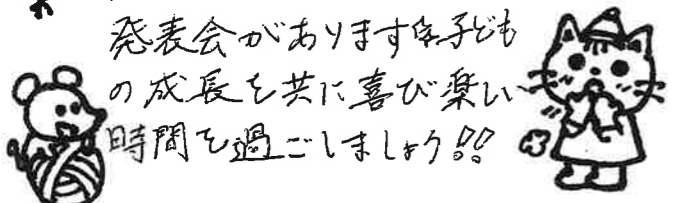 発表会があります。子ども
の成長を共に喜び楽しい
時間を過ごしましょう!!